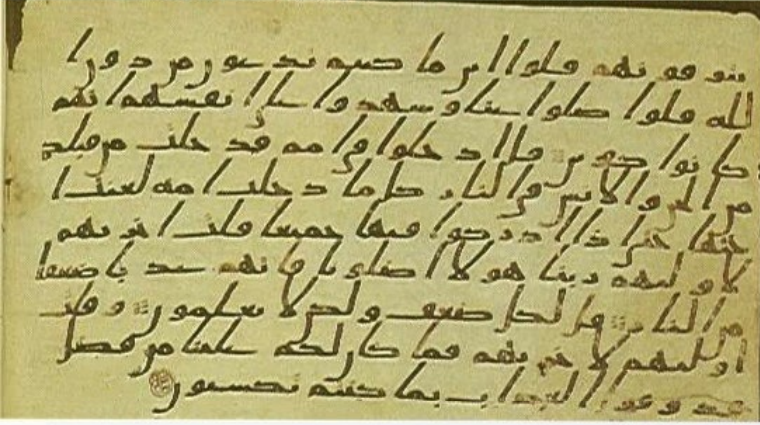 يتوفونهم قلوا اين ما كنتم تدعون من دون ا
لله قلوا ضلوا عنا وشهدوا على انفسهم انهم
كانوا كفرين قل ادخلوا في امم قد خلت من قبلكم
من الجن والانس في النار كلما دخلت امه لعنت ا
ختها حتى اذا اداركوا فيها جميعا قلت اخريهم
لاوليهم ربنا هولا اضلونا فاتهم عذابا ضعفا
من النار قل لكل ضعف ولكن لا تعلمون وقلت
اوليهم لاخريهم فما كان لكم علينا من فضل
فذوقوا العذاب بما كنتم تكسبون